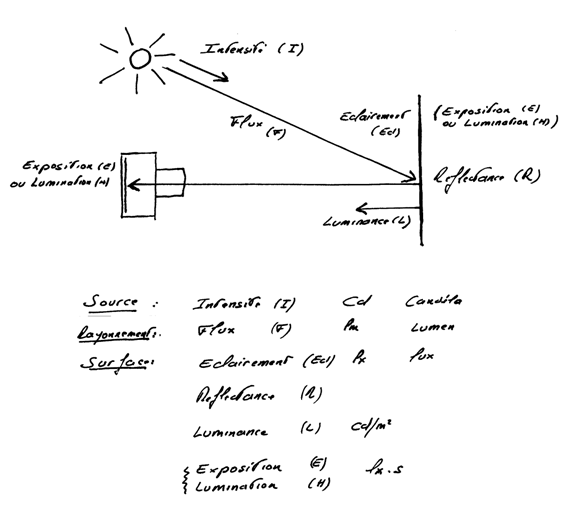 Intensité (I)
Flux (F)
Eclairement (Ecl)
(Exposition (E)
ou Lumination (H))
Exposition (E)
ou Lumination (H)
Reflectance (R)
Luminance (L)
Source : Intensité (I) Cd Candéla
Rayonnement: Flux (F) lm Lumen
Surface: Eclairement (Ecl) lx lux
Reflectance (R)
Luminance (L) Cd/m²
Exposition (E) lx.s
Lumination (H)